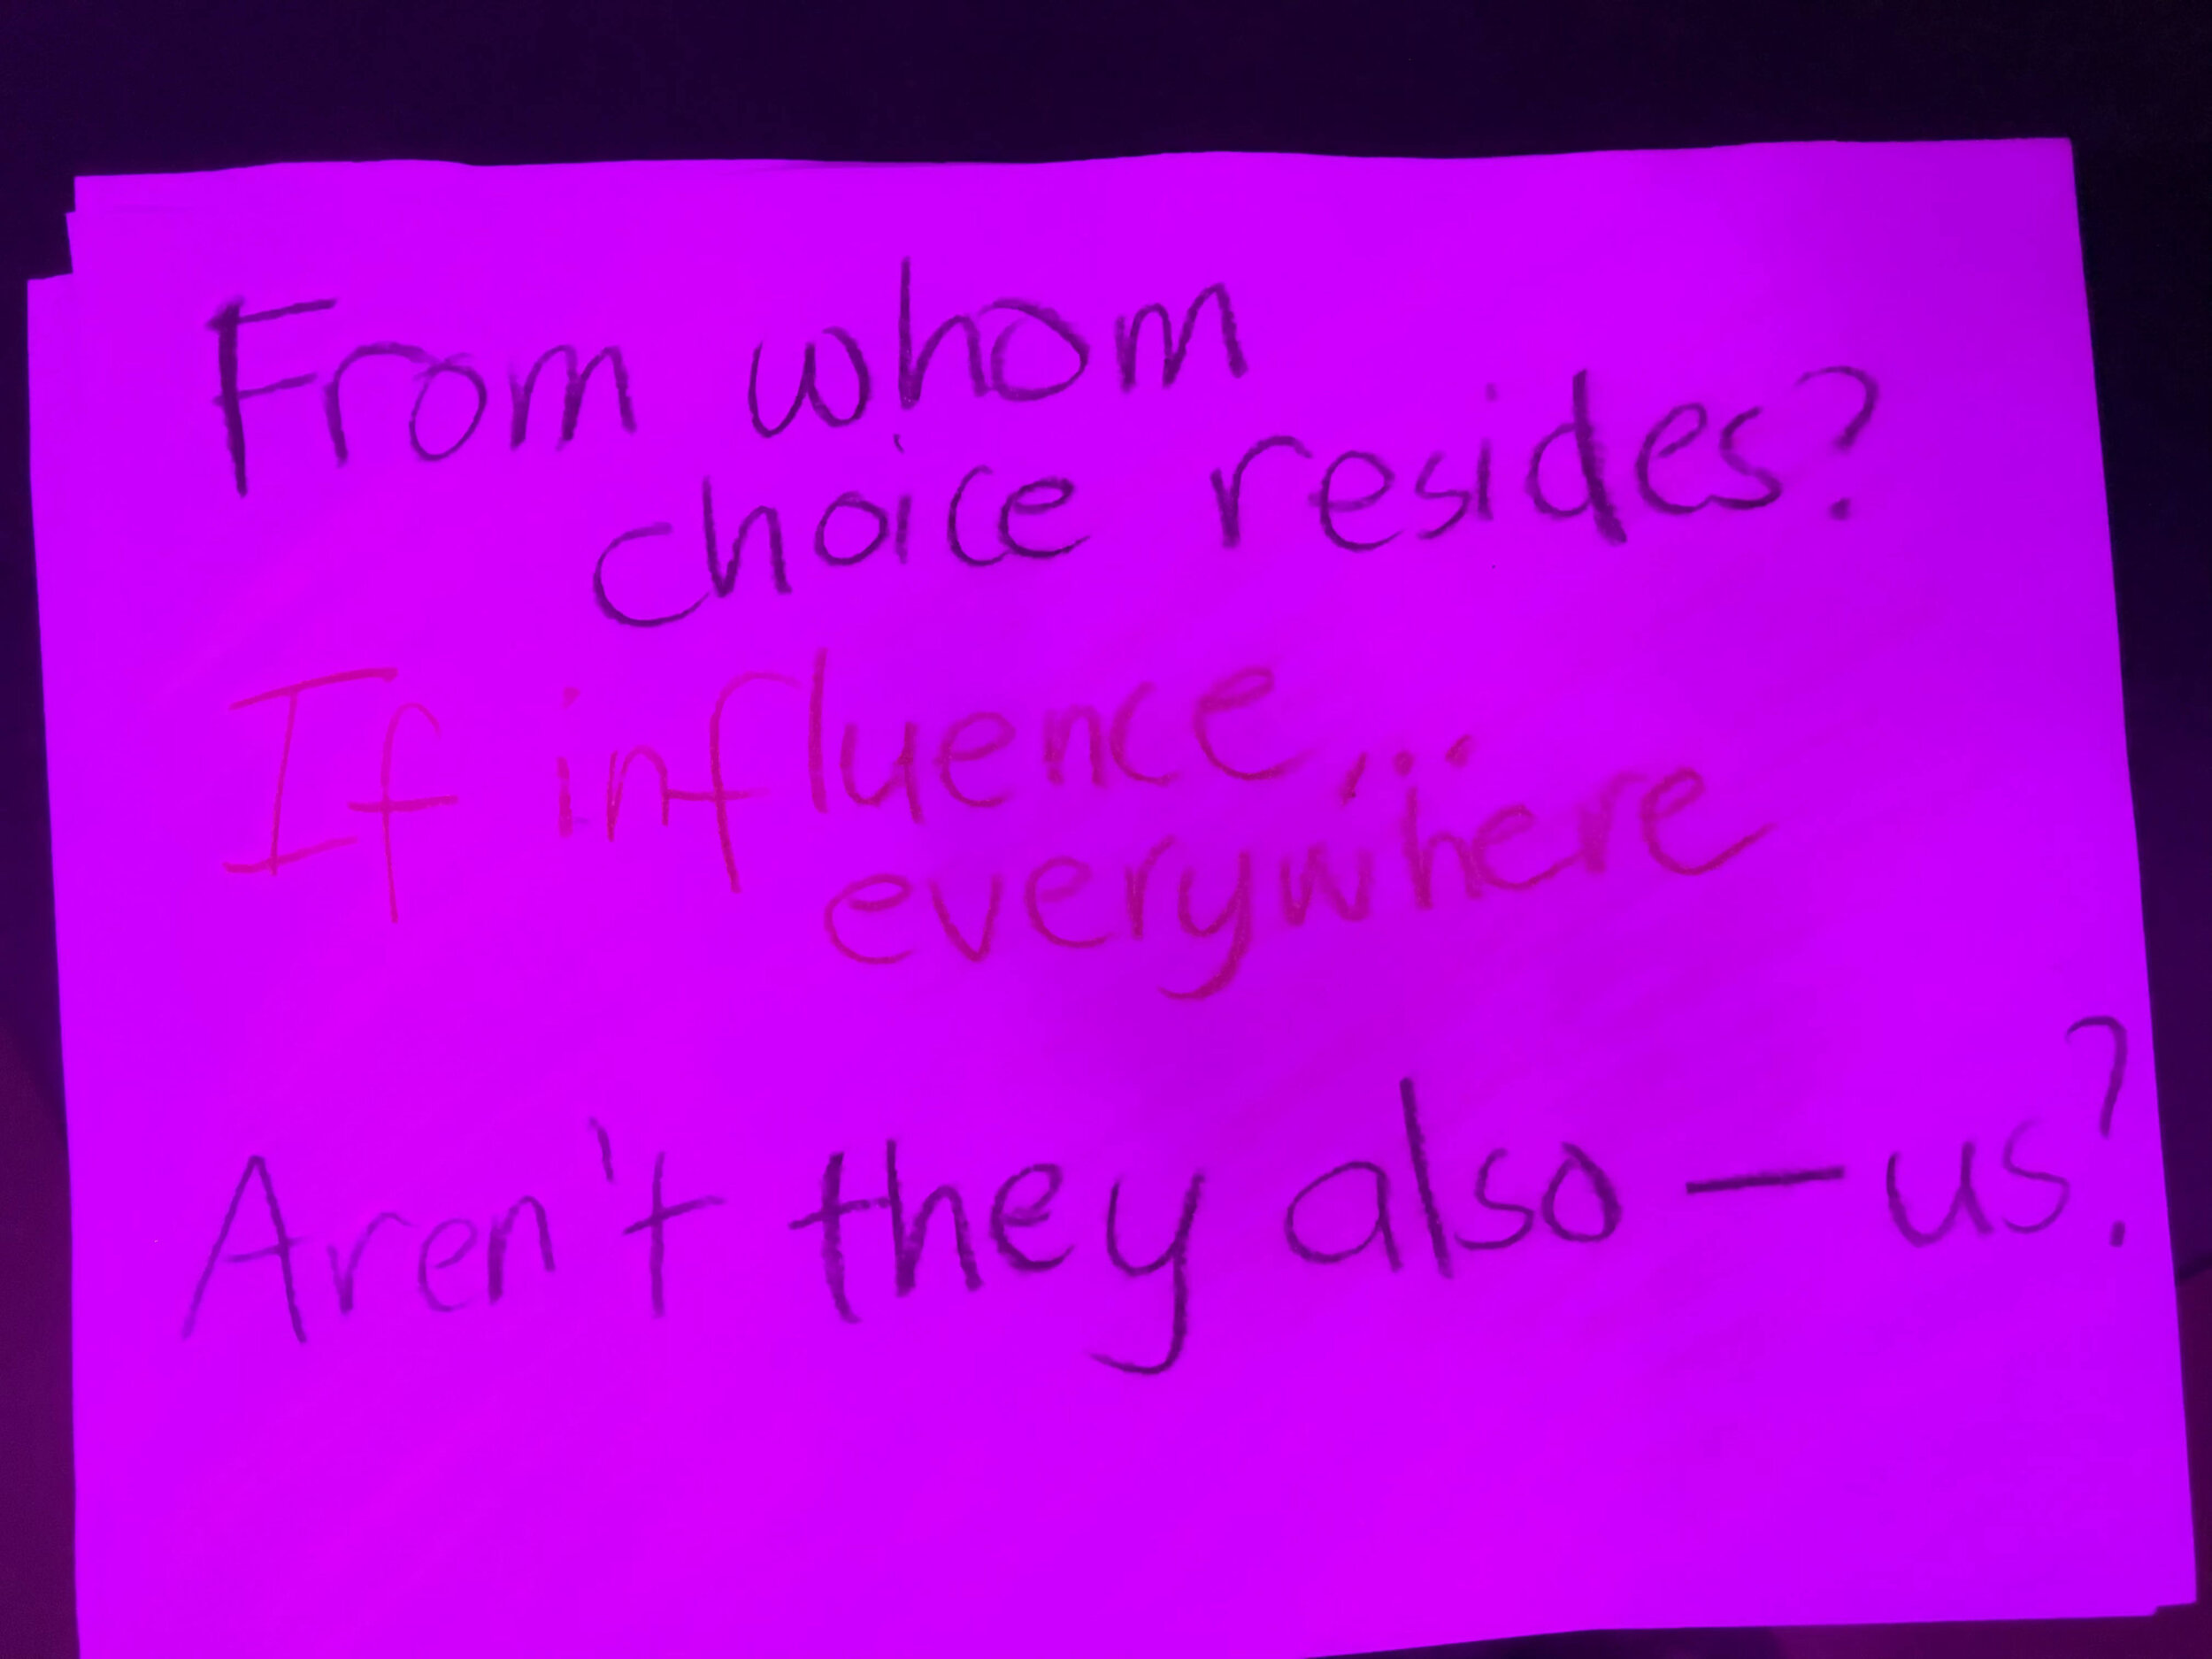 From whom
choice resides?
If influence...
everywhere
Aren't they also — us?